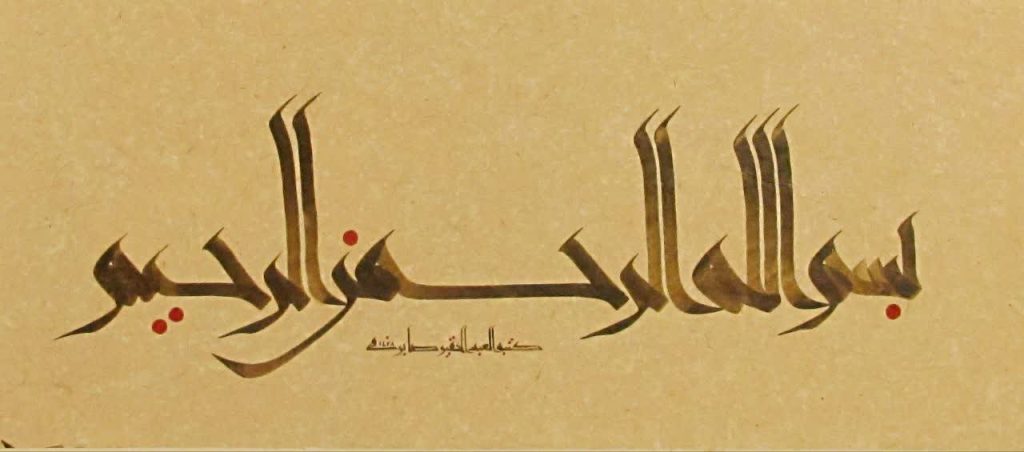 بسم الله الرحمن الرحيم
كتبه العبد الحقير صابر